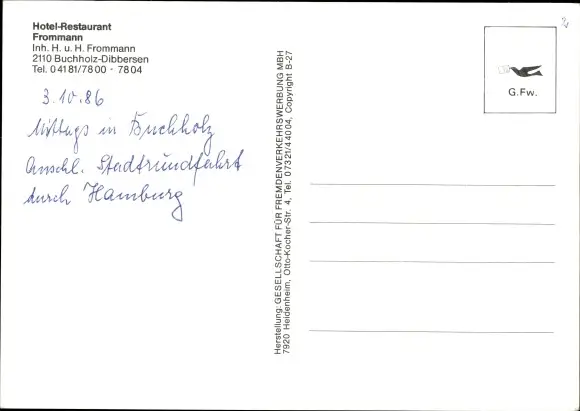 Hotel-Restaurant
Frommann
Inh. H. u. H. Frommann
2110 Buchholz-Dibbersen
Tel. 0 41 81/78 00 - 78 04
3.10.86
Mittags in Buchholz
Anschl. Stadtrundfahrt
durch Hamburg
Herstellung: GESELLSCHAFT FÜR FREMDENVERKEHRSWERBUNG MBH
7920 Heidenheim, Otto-Kocher-Str. 4, Tel. 07321/44004, Copyright B-27
G.Fw.